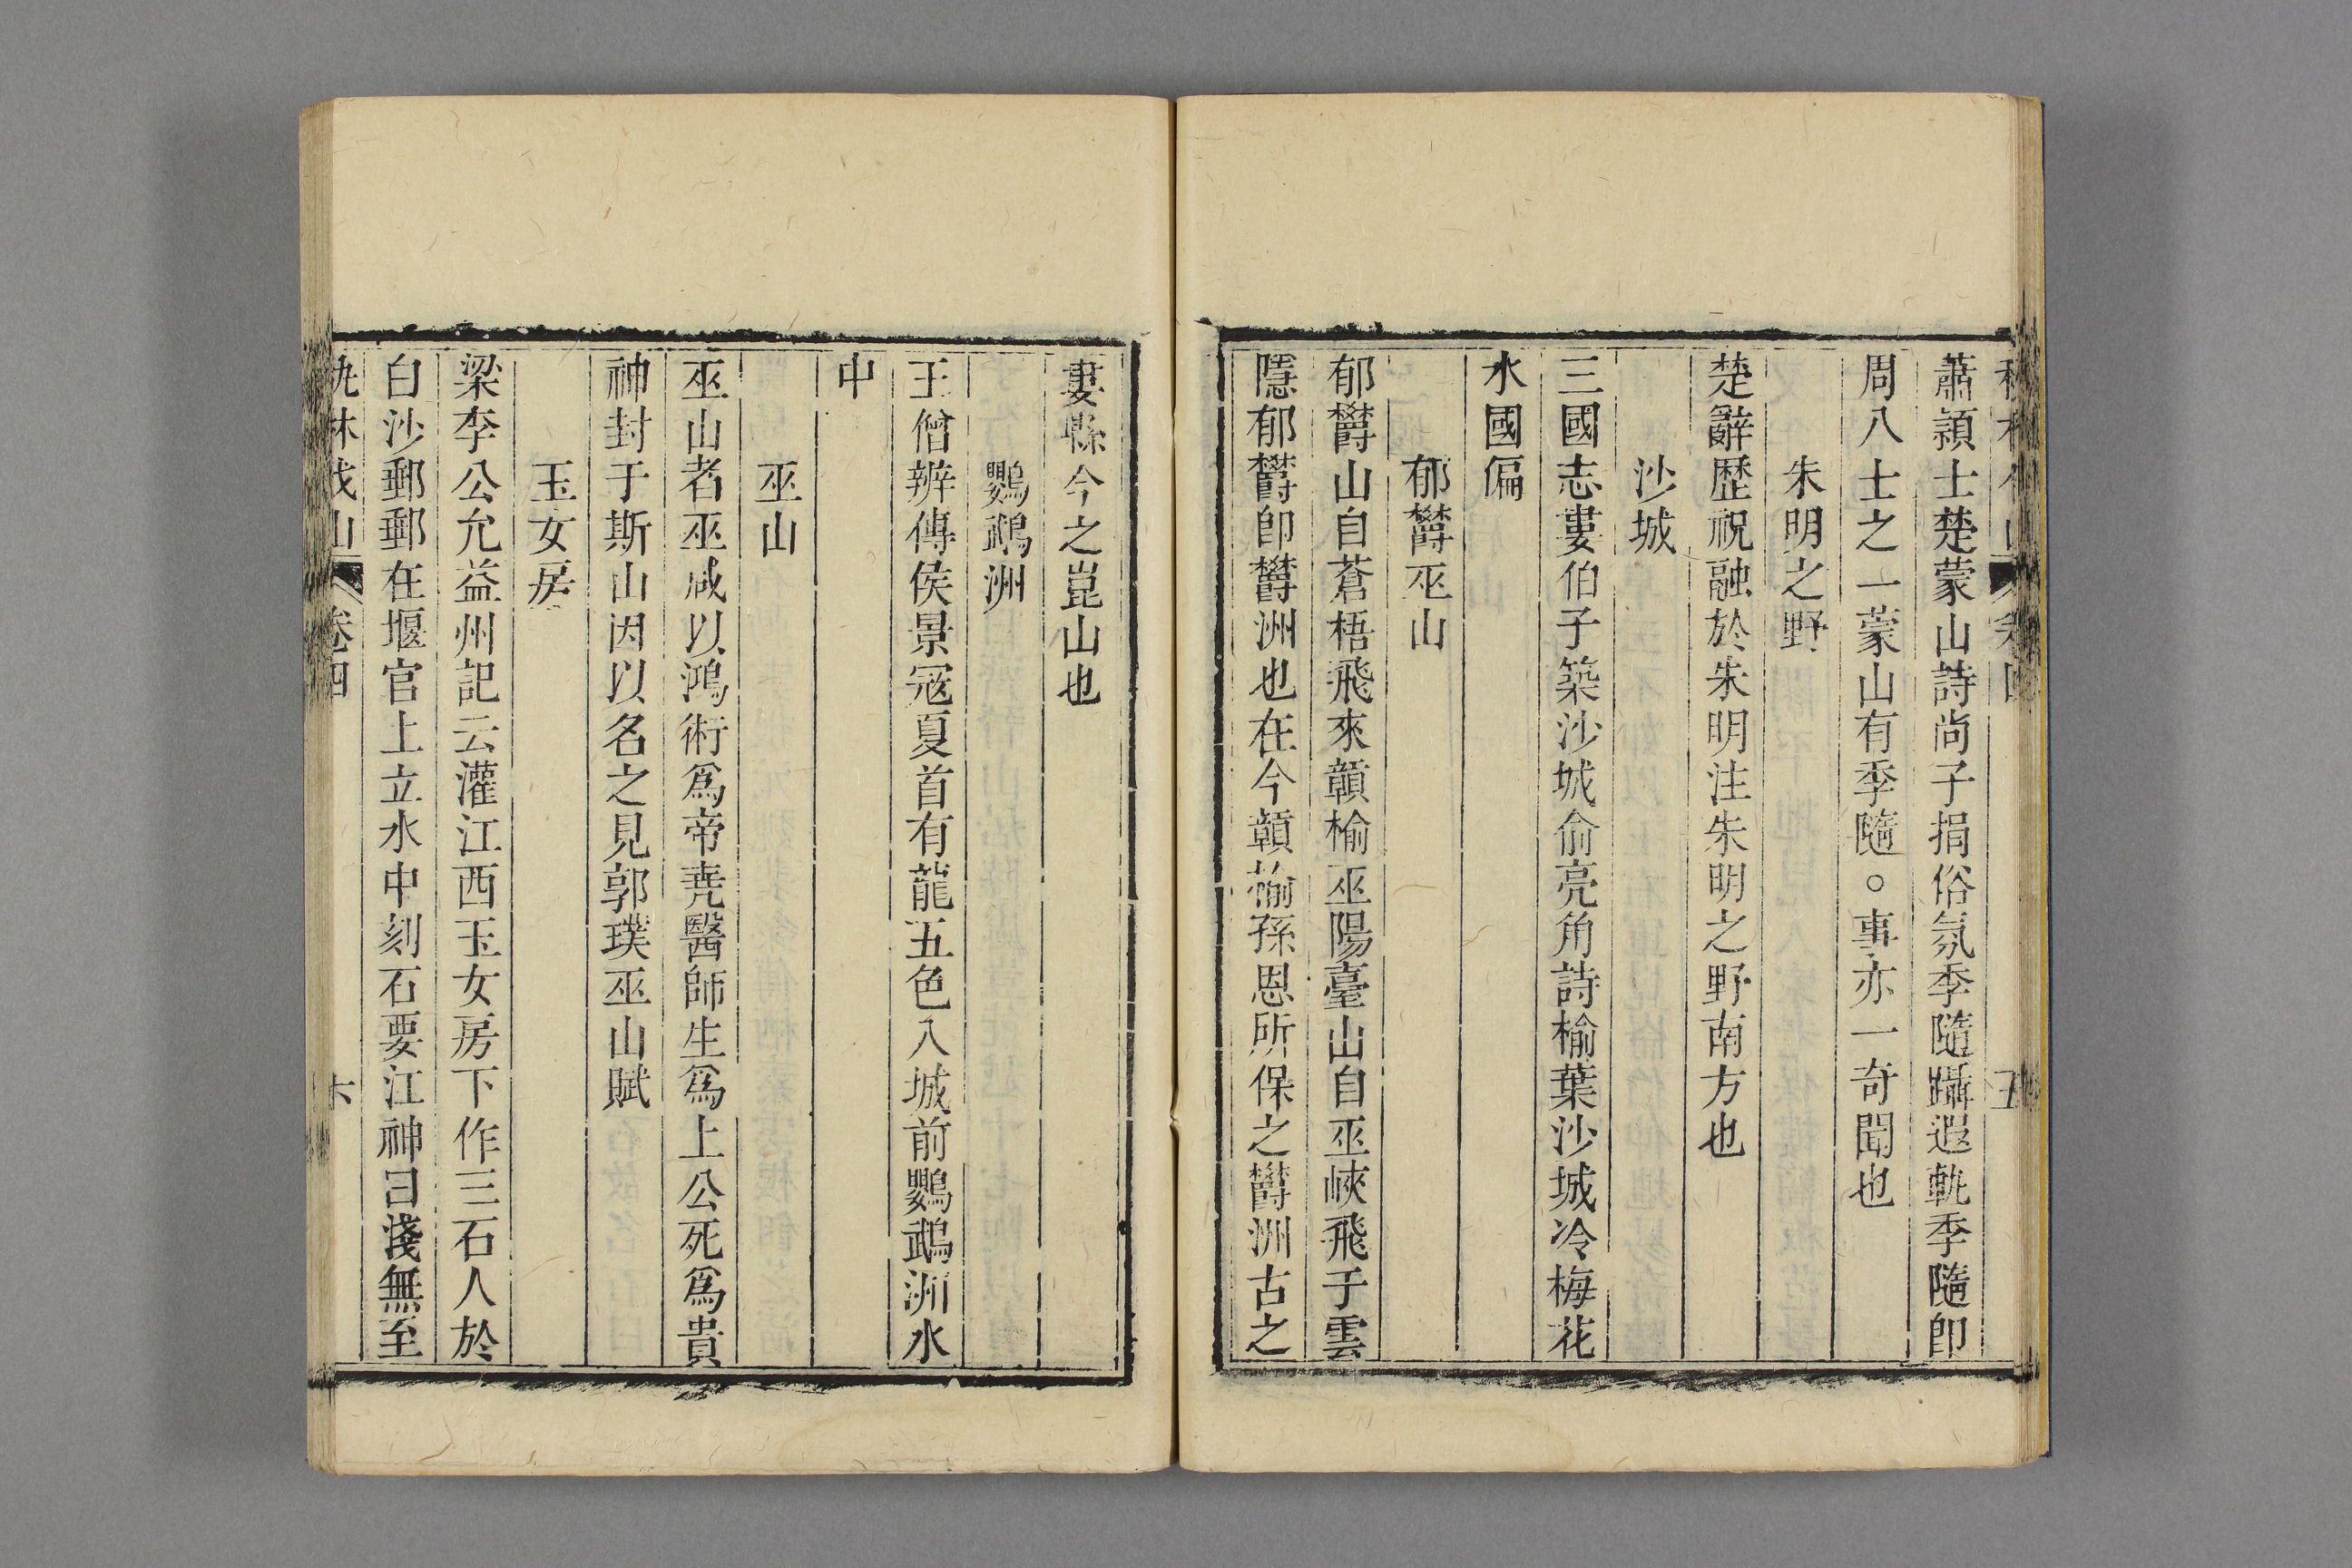 蕭頴士楚蒙山詩尚子捐俗氛季隨躡遐軌季隨卽
周八士之一蒙山有季隨。事亦一奇聞也
朱明之野
楚辭歴祝融於朱明注朱明之野南方也
沙城
三國志婁伯子築沙城俞亮角詩榆葉沙城冷梅花
水國偏
郁欝巫山
郁欝山自蒼梧飛來贑榆巫陽臺山自巫峽飛于雲
隱郁欝卽欝洲也在今贑榆孫恩所保之欝洲古之
婁縣今之崑山也
鸚鵡洲
王僧辨傳侯景冦夏首有龍五色入城前鸚鵡洲水
中
巫山
巫山者巫咸以鴻術爲帝堯醫師生爲上公死爲貴
神封于斯山因以名之見郭璞巫山賦
玉女房
梁李公允益州記云灌江西玉女房下作三石人於
白沙郵郵在堰官上立水中刻石要江神曰淺無至
卷四
六